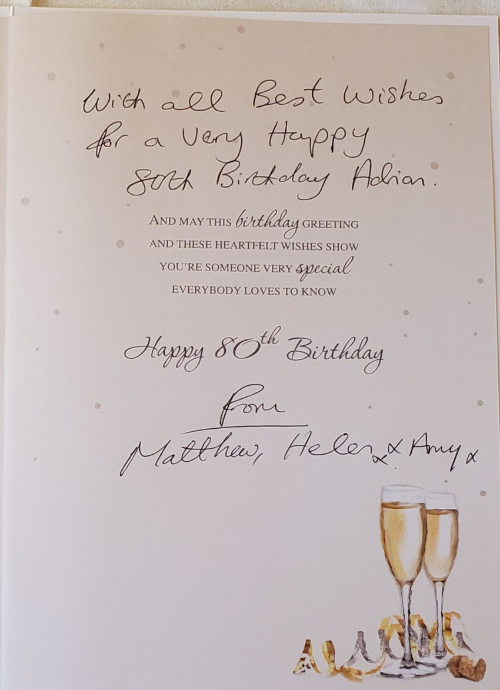 With all Best Wishes
for a Very Happy
80th Birthday Adrian.
AND MAY THIS birthday GREETING
AND THESE HEARTFELT WISHES SHOW
YOU'RE SOMEONE VERY special
EVERYBODY LOVES TO KNOW
Happy 80th Birthday
from
Matthew, Helen x x Amy x